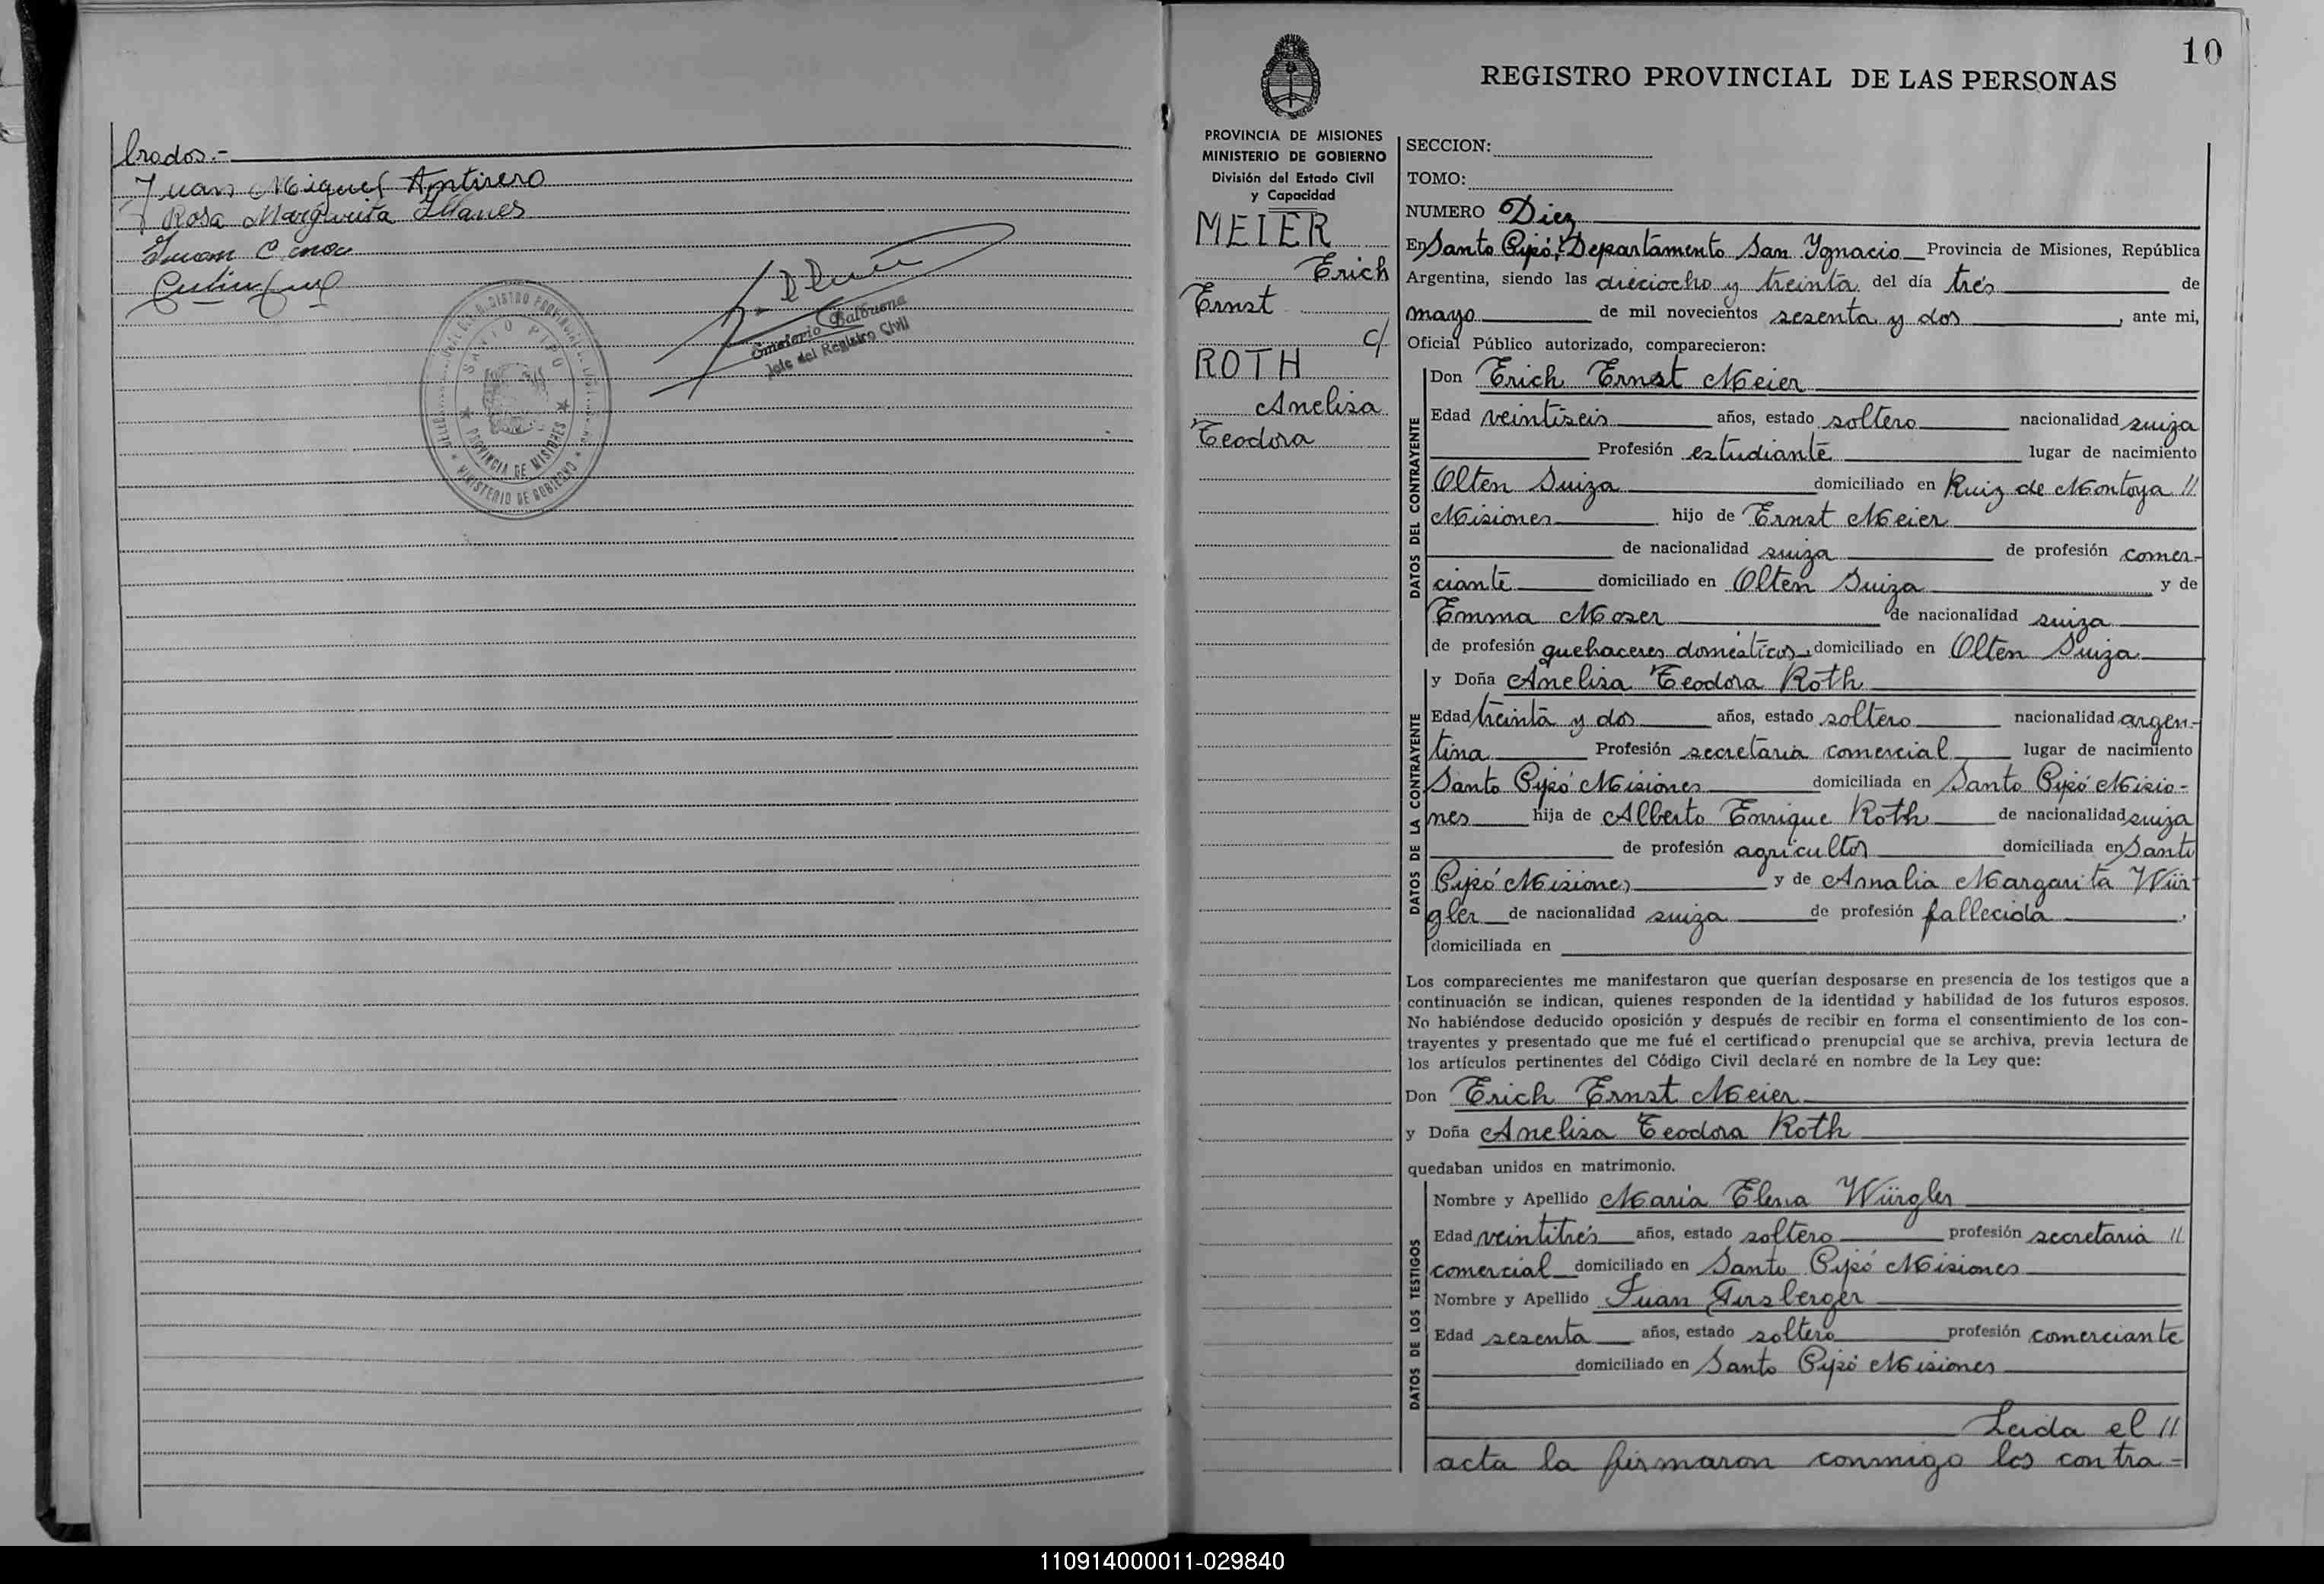 brados.-
Juan Miguel Antinero
Rosa Margarita Llanes
Juan
SANTO PIPO
PROVINCIA DE MISIONES
MINISTERIO DE GOBIERNO
Balbuena
Jefe del Registro Civil
10
REGISTRO PROVINCIAL DE LAS PERSONAS
PROVINCIA DE MISIONES
MINISTERIO DE GOBIERNO
División del Estado Civil
y Capacidad
MEIER
Erich
Ernst
c/
ROTH
Anelisa
Teodora
SECCION:
TOMO:
NUMERO Diez
En Santo Pipó, Departamento San Ygnacio Provincia de Misiones, República
Argentina, siendo las dieciocho y treinta del día trés de
mayo de mil novecientos sesenta y dos, ante mi,
Oficial Público autorizado, comparecieron:
DATOS DEL CONTRAYENTE
Don Erich Ernst Meier
Edad veintiseis años, estado soltero nacionalidad suiza
Profesión estudiante lugar de nacimiento
Olten Suiza domiciliado en Ruiz de Montoya //
Misiones hijo de Ernst Meier
de nacionalidad suiza de profesión comer-
ciante domiciliado en Olten Suiza y de
Emma Moser de nacionalidad suiza
de profesión quehaceres domésticos, domiciliado en Olten Suiza
DATOS DE LA CONTRAYENTE
y Doña Anelisa Teodora Roth
Edad treinta y dos años, estado soltero nacionalidad argen-
tina Profesión secretaria comercial lugar de nacimiento
Santo Pipó Misiones domiciliada en Santo Pipó Misio-
nes hija de Alberto Enrique Roth de nacionalidad suiza
de profesión agricultor domiciliada en Santo
Pipó Misiones y de Annalia Margarita Wür-
gler de nacionalidad suiza de profesión fallecida.
domiciliada en
Los comparecientes me manifestaron que querían desposarse en presencia de los testigos que a
continuación se indican, quienes responden de la identidad y habilidad de los futuros esposos.
No habiéndose deducido oposición y después de recibir en forma el consentimiento de los con-
trayentes y presentado que me fué el certificado prenupcial que se archiva, previa lectura de
los artículos pertinentes del Código Civil declaré en nombre de la Ley que:
Don Erich Ernst Meier
y Doña Anelisa Teodora Roth
quedaban unidos en matrimonio.
DATOS DE LOS TESTIGOS
Nombre y Apellido Maria Elena Würgler
Edad veintitrés años, estado soltero profesión secretaria //
comercial domiciliado en Santo Pipó Misiones
Nombre y Apellido Juan Girsberger
Edad sesenta años, estado soltero profesión comerciante
domiciliado en Santo Pipó Misiones
Leida el //
acta la firmaron conmigo los contra-
110914000011-029840